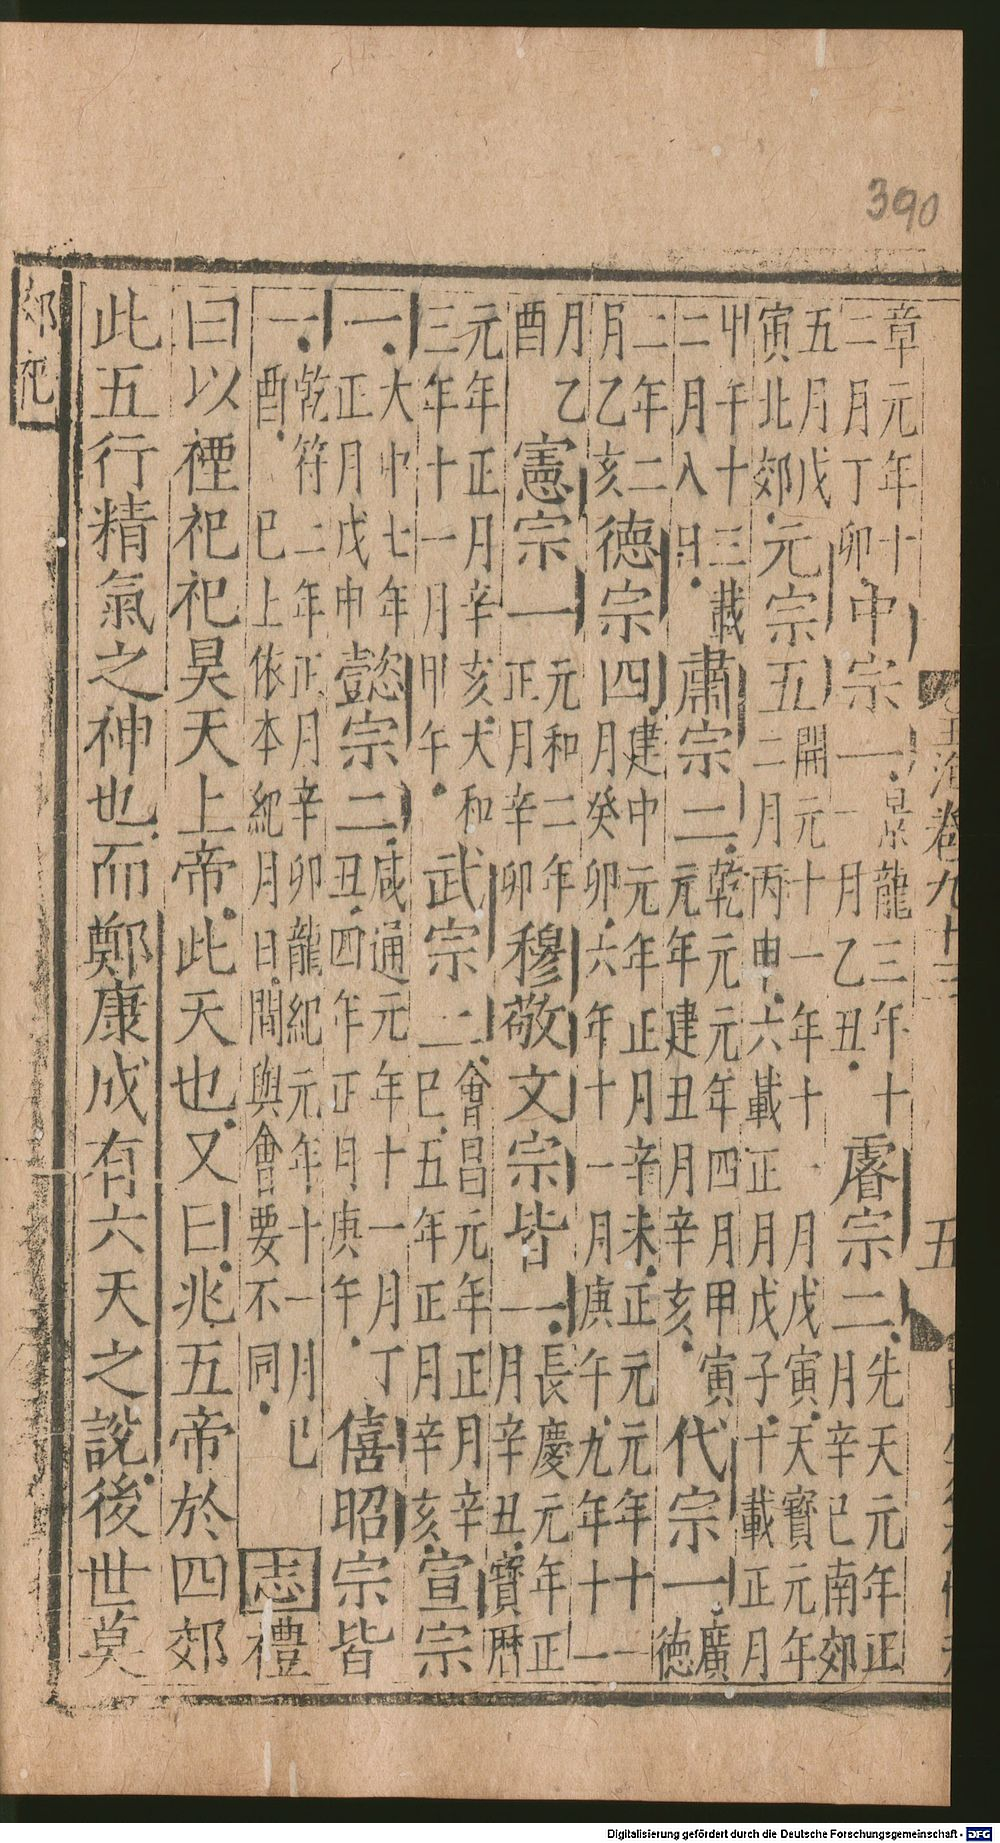 390
章元年十
二月丁卯
中宗一
景龍三年十
一月乙丑
睿宗二
先天元年正
月辛巳南郊
五月戊
寅北郊
元宗五
開元十一年十一月戊寅天寶元年
二月丙申六載正月戊子十載正月
甲午十三載
二月八日
肅宗二
乾元元年四月甲寅
元年建丑月辛亥
代宗一
廣
德
二年二
月乙亥
德宗四
建中元年正月辛未正元元年十一
月癸卯六年十一月庚午九年十一
月乙
酉
憲宗一
元和二年
正月辛卯
穆敬文宗皆一
長慶元年正
月辛丑寶曆
元年正月辛亥犬和
三年十一月甲午
武宗二
會昌元年正月辛
巳五年正月辛亥
宣宗
一
大中七年
正月戊申
懿宗二
咸通元年十一月丁
丑四年正月庚午
僖昭宗皆
一
乾符二年正月辛卯龍紀元年十一月己
酉巳上依本紀月日間與會要不同
志禮
曰以禋祀祀昊天上帝此天也又曰兆五帝於四郊
此五行精氣之神也而鄭康成有六天之説後世莫
郊祀
五
Digitalisierung gefördert durch die Deutsche Forschungsgemeinschaft - DFG